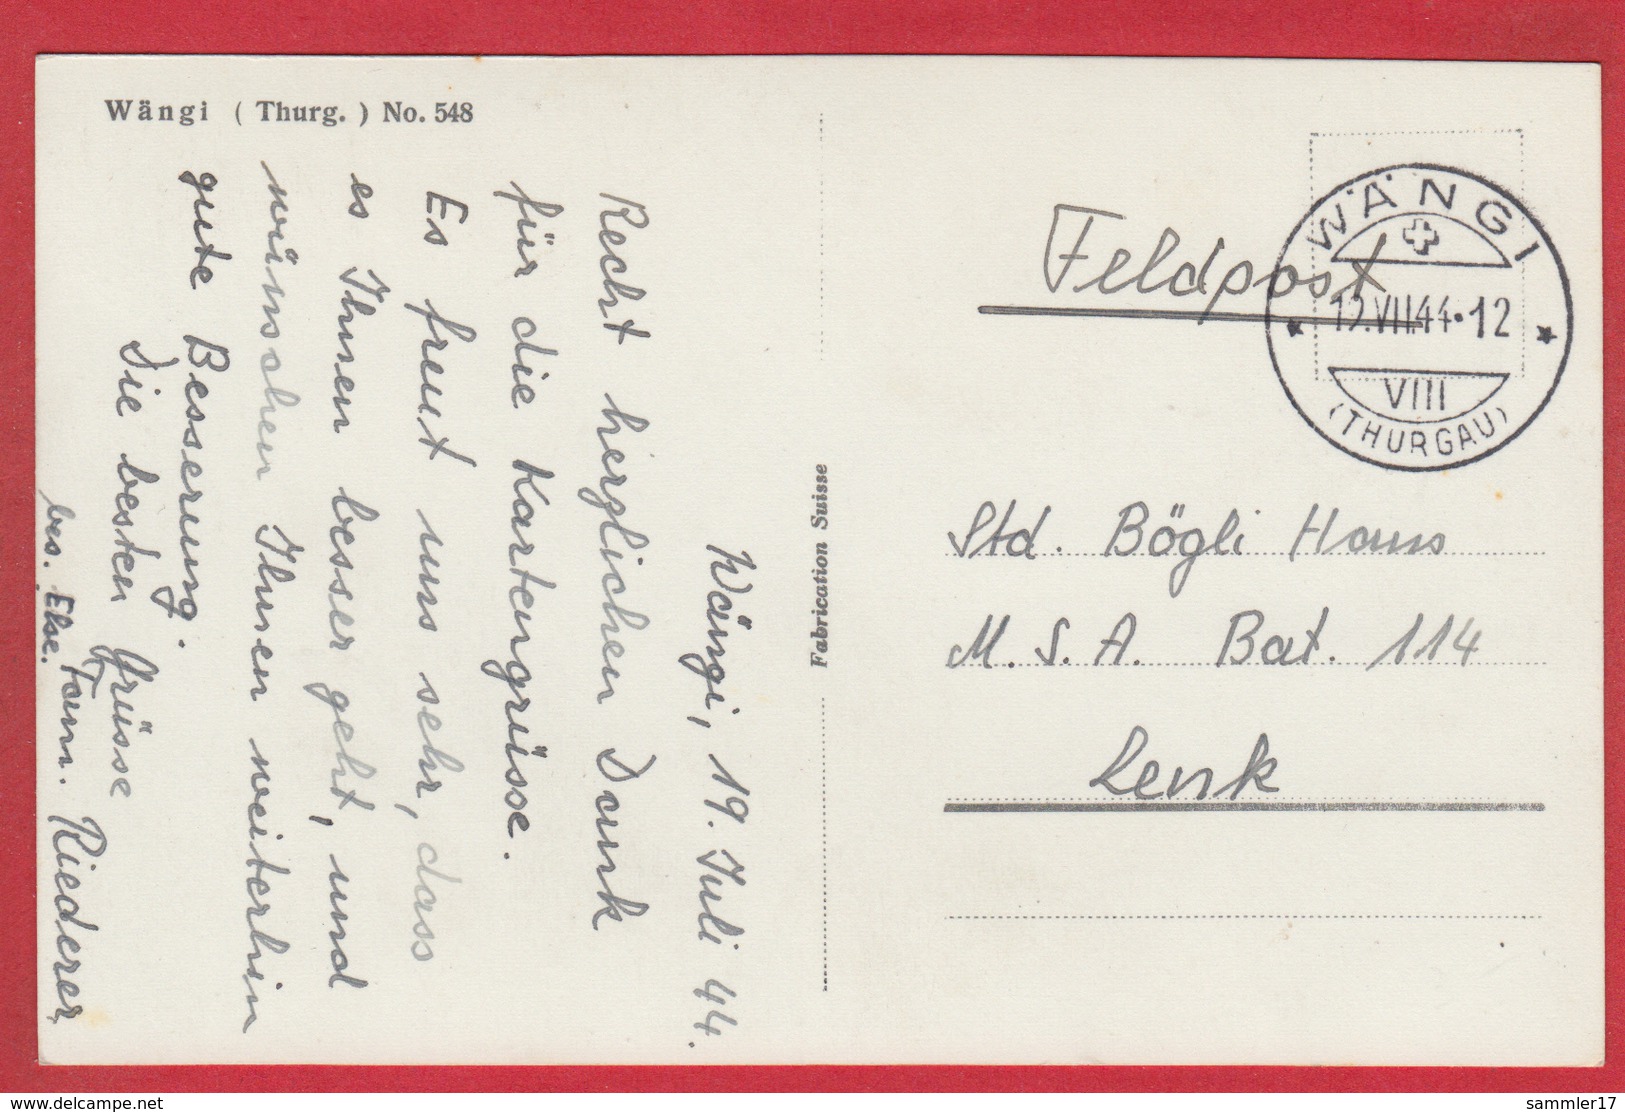 Wängi ( Thurg. ) No. 548
Wängi, 19. Juli 44.
Recht herzlichen Dank
für die Kartengrüsse.
Es freut uns sehr, dass
es Ihnen besser geht, und
wünschen Ihnen weiterhin
gute Besserung.
Die besten Grüsse
Fam. Riederer
bes. Else.
Fabrication Suisse
Feldpost
WÄNGI
19.VII 44·12
VIII
(THURGAU)
Sdt. Bögli Hans
M.S.A. Bat. 114
Lenk
www.delcampe.net
sammler17